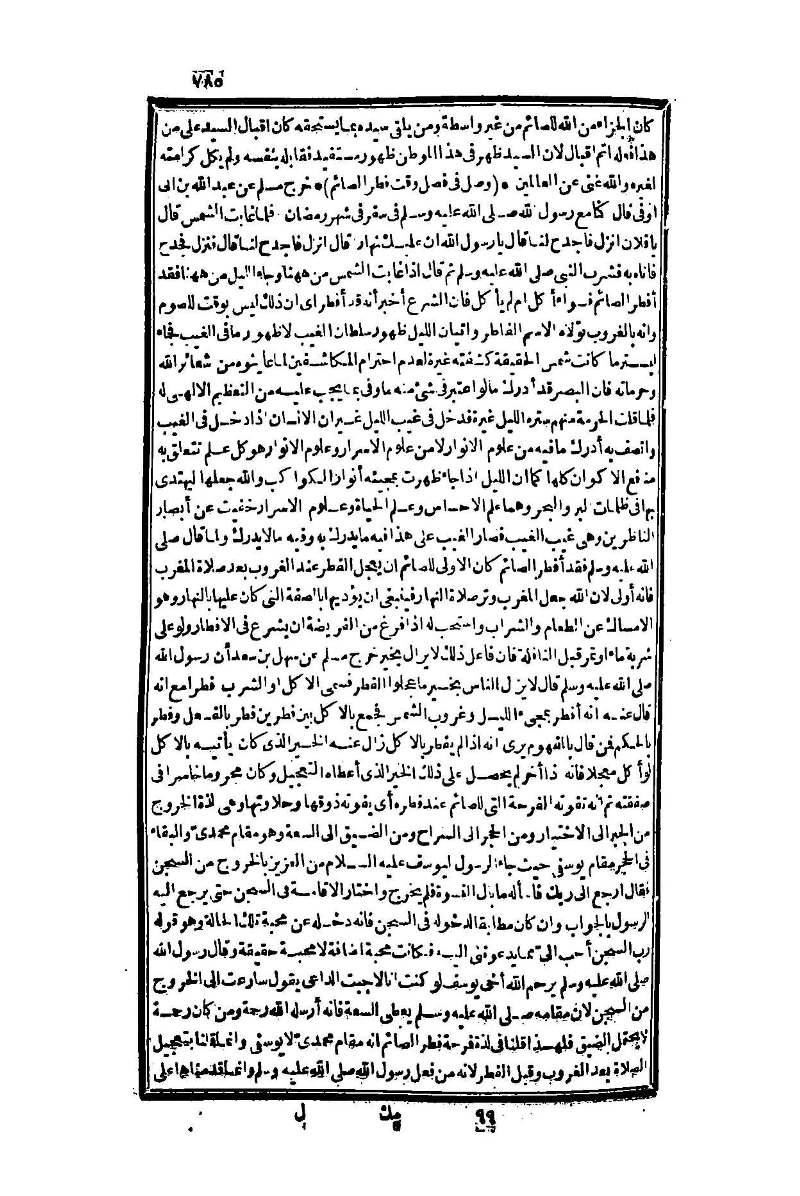 ٧٨٥
كان الجزاء من الله للصائم من غير واسطة ومن يلقى سيده بما يستحقه كان اقبال السيد على من
هذا فعله أتم اقبال لان السيد ظهر في هذا الموطن ظهور مستفيد فقابله بنفسه ولم يكل كرامته
لغيره والله غنى عن العالمين * (وصل فى فصل وقت فطر الصائم) * خرج مسلم عن عبد الله بن أبى
أوفى قال كنا مع رسول الله صلى الله عليه وسلم فى سفر فى شهر رمضان فلما غابت الشمس قال
يا فلان انزل فاجدح لنا قال يا رسول الله ان عليك نهار قال انزل فاجدح لنا قال فنزل فجدح
فاتاه به فشرب النبى صلى الله عليه وسلم ثم قال اذا غابت الشمس من ههنا وجاء الليل من ههنا فقد
أفطر الصائم فسواء أكل أم لم يأكل فان الشرع أخبر أنه قد أفطر أى ان ذلك ليس بوقت للصوم
وانه بالغروب تولاه الاسم الفاطر واتيان الليل ظهور سلطان الغيب لا ظهور ما فى الغيب فجاء
ليستر ما كانت شمس الحقيقة كشفته غيرة لعدم احترام المكاشفين لما عاينوه من شعائر الله
وحرماته فان البصر قد أدرك ما لو اعتبر فى شئ منه ما وفى بما يجب عليه من التعظيم الالهى له
فلما قلت الحرمة منهم ستره الليل غيرة فدخل فى غيب الليل غير ان الانسان اذا دخل فى الغيب
واتصف به أدرك ما فيه من علوم الانوار لا من علوم الاسرار وعلوم الانوار هو كل علم تتعلق به
منافع الاكوان كلها كما ان الليل اذا جاء ظهرت بمجيئه أنوار الكواكب والله جعلها ليهتدى
بها فى ظلمات البر والبحر وهما علم الاحساس وعلم الحياة وعلوم الاسرار خفيت عن أبصار
الناظرين وهى غيب الغيب فصار الغيب على هذا فيه ما يدرك به وفيه ما لا يدرك ولما قال صلى
الله عليه وسلم فقد أفطر الصائم كان الاولى للصائم ان يعجل الفطر عند الغروب بعد صلاة المغرب
فانه أولى لان الله جعل المغرب وتر صلاة النهار فينبغى ان يؤديها بالصفة التى كان عليها بالنهار وهو
الامساك عن الطعام والشراب واستحب له اذا فرغ من الفريضة ان يشرع فى الافطار ولو على
شربة ماء أو تمر قبل النافلة فان فاعل ذلك لا يزال بخير خرج مسلم عن سهل بن سعد أن رسول الله
صلى الله عليه وسلم قال لا يزال الناس بخير ما عجلوا الفطر فسمى الاكل أو الشرب فطرا مع انه
قال عنه انه أفطر بمجيء الليل وغروب الشمس فجمع بالاكل بين فطرين فطر بالفعل وفطر
بالحكم فمن قال بالمفهوم يرى انه اذا لم يفطر بالاكل زال عنه الخير الذى كان يأتيه بالاكل
لو أكل معجلا فانه اذا أخر لم يحصل على ذلك الخير الذى أعطاه التعجيل وكان محروما خاسرا فى
صفقته ثم انه تفوته الفرحة التى للصائم عند فطره أى يفوته ذوقها وحلاوتها وهى لذة الخروج
من الجبر الى الاختيار ومن الحجر الى السراح ومن الضيق الى السعة وهو مقام محمدى والبقاء
فى الحجر مقام يوسفى حيث جاء الرسول ليوسف عليه السلام من العزيز بالخروج من السجن
فقال ارجع الى ربك فاسأله ما بال النسوة فلم يخرج واختار الاقامة فى السجن حتى يرجع اليه
الرسول بالجواب وان كان مطابقا لدخوله فى السجن فانه دخله عن محبة تلك الحالة وهو قوله
رب السجن أحب الىّ مما يدعوننى اليه فكانت محبة اضافة لا محبة حقيقة وقال رسول الله
صلى الله عليه وسلم يرحم الله أخى يوسف لو كنت أنا لاجبت الداعى يقول سارعت الى الخروج
من السجن لان مقامه صلى الله عليه وسلم يعطى السعة فانه أرسله الله رحمة ومن كان رحمة
لا يحتمل الضيق فلهذا قلنا فى لذة فرحة فطر الصائم انه مقام محمدى لا يوسفى وانما قلنا بتعجيل
الصلاة بعد الغروب وقبل الفطر لانه من فعل رسول الله صلى الله عليه وسلم وانما قدمناها على
٩٩ يك ل